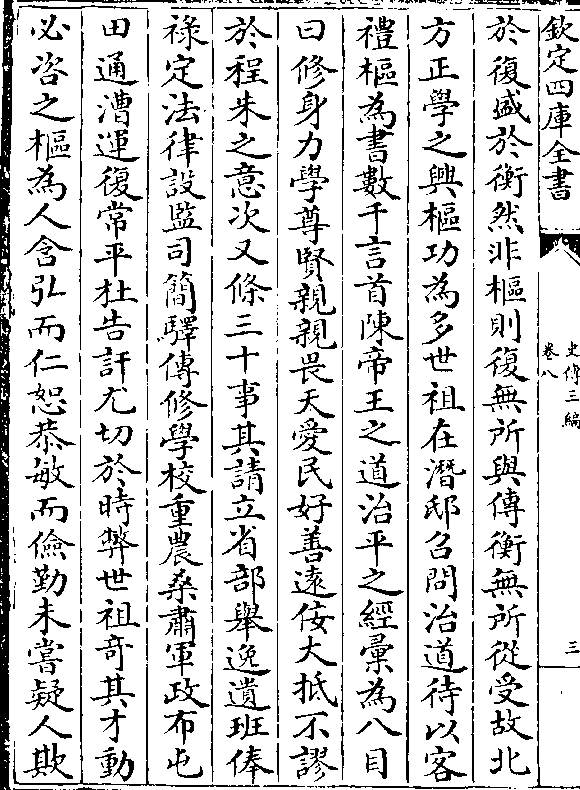 欽定四庫全書
史傳三編
卷八
三
於復盛於衡然非樞則復無所與傳衡無所從受故北
方正學之興樞功為多世祖在潛邸召問治道待以客
禮樞為書數千言首陳帝王之道治平之經彙為八目
曰修身力學尊賢親親畏天愛民好善遠佞大抵不謬
於程朱之意次又條三十事其請立省部舉逸遺班俸
祿定法律設監司簡驛傳修學校重農桑肅軍政布屯
田通漕運復常平杜告訐尤切於時弊世祖竒其才動
必咨之樞為人含弘而仁恕恭敏而儉勤未嘗疑人欺